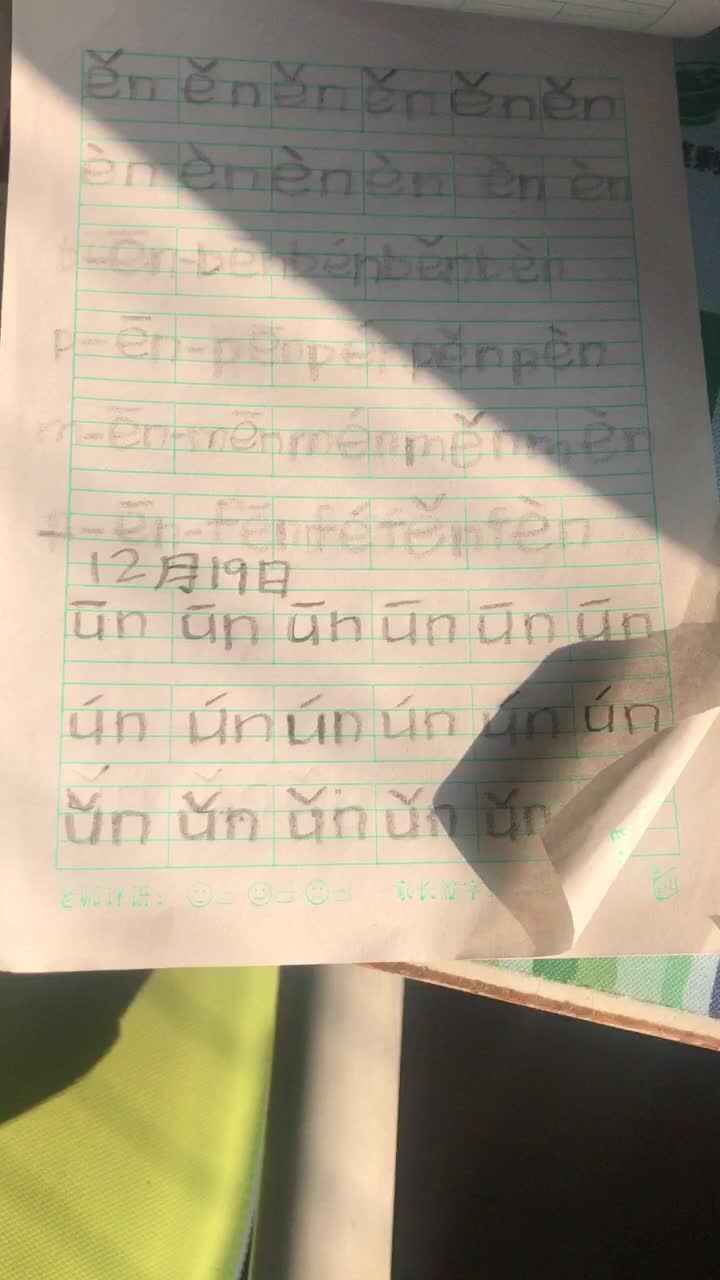 ěn ěn ěn ěn ěn ěn
èn èn èn èn èn èn
b-ēn-bēn bén běn bèn
p-ēn-pēn pén pěn pèn
m-ēn-mēn mén měn mèn
f-ēn-fēn fé fěn fèn
12月19日
ūn ūn ūn ūn ūn ūn
ún ún ún ún ún ún
ǔn ǔn ǔn ǔn ǔn
老师评语: 家长签字